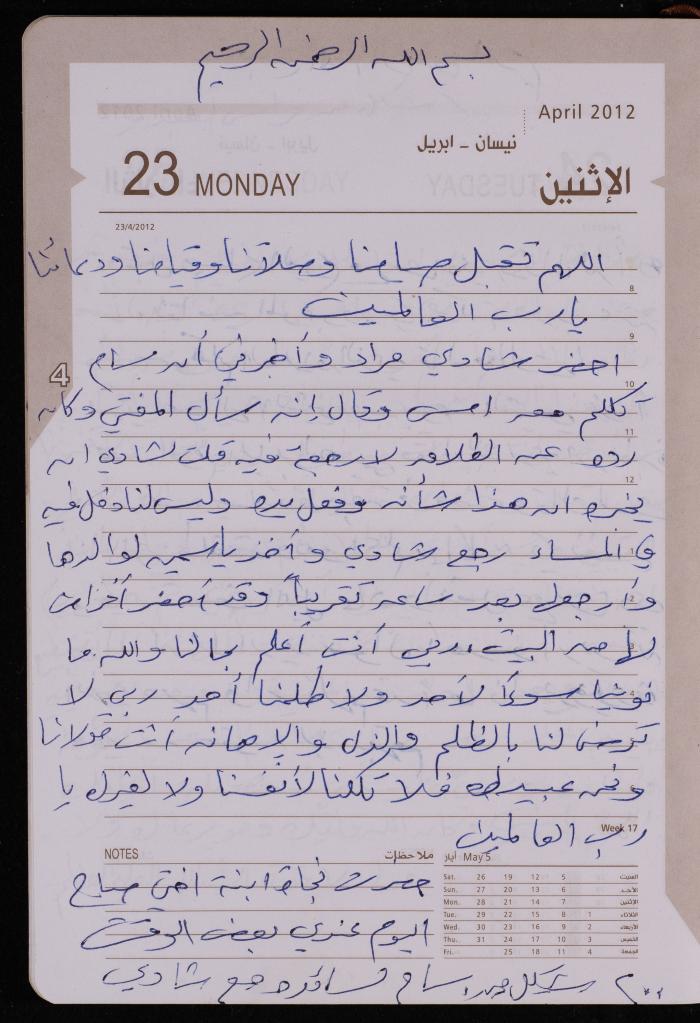 بسم الله الرحمن الرحيم
April 2012
نيسان - ابريل
23 MONDAY
الإثنين
23/4/2012
اللهم تقبل صيامنا وصلاتنا وقيامنا ودعائنا
8
يارب العالمين
9
احضر شادي مراد وأخبرني أن بسام
4
10
تكلم معه امس وقال إنه سأل المفتي وكان
11
رده عن الطلاق لا رجعة فيه قلت لشادي ان
12
يخبره ان هذا شأنه وفعل يده وليس لنا دخل فيه
1
في المساء رجع شادي وأخذ ياسمين لوالدها
2
وأرجعها بعد ساعه تقريباً وقد أحضر أغراض
3
لها من البيت ربي أنت أعلم بحالنا والله ما
4
نوينا سوءاً لأحد ولا ظلمنا أحد ربي لا
ترضى لنا بالظلم والذل والإهانه أنت مولانا
ونحن عبيدك فلا تكلنا لأنفسنا ولا لغيرك يا
رب العالمين
Week 17
NOTES ملاحظات
May 5 أيار
Sat. 26 19 12 5 السبت
Sun. 27 20 13 6 الأحد
Mon. 28 21 14 7 الإثنين
Tue. 29 22 15 8 1 الثلاثاء
Wed. 30 23 16 9 2 الأربعاء
Thu. 31 24 17 10 3 الخميس
Fri. 25 18 11 4 الجمعة
حضرت نجاة ابنة اختي صباح
اليوم عندي بعض الوقت
٢٠٠ شيكل مع شادي